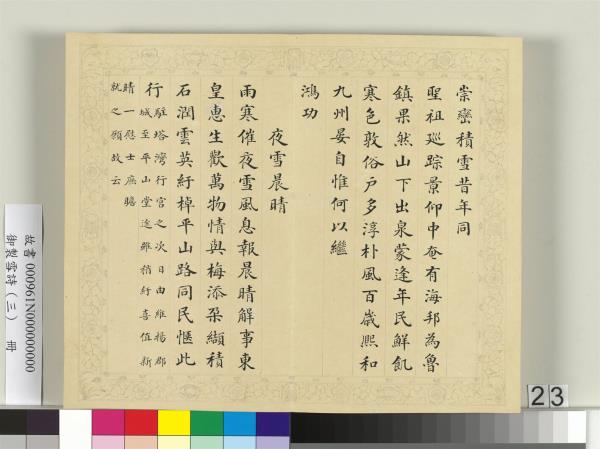 崇巒積雪昔年同
聖祖巡踪景仰中奄有海邦為魯
鎮果然山下出泉蒙逢年民鮮飢
寒色敦俗戶多淳朴風百歲熙和
九州晏自惟何以繼
鴻功
夜雪晨晴
雨寒催夜雪風息報晨晴解事東
皇惠生歡萬物情與梅添朶纈積
石潤雲英紆棹平山路同民愜此
行駐塔灣行宮之次日由維揚郡
城至平山堂途雖稍紆喜值新
晴一慰士庶瞻
就之願故云
故書 000961N000000000
御製雪詩（三） 冊
23